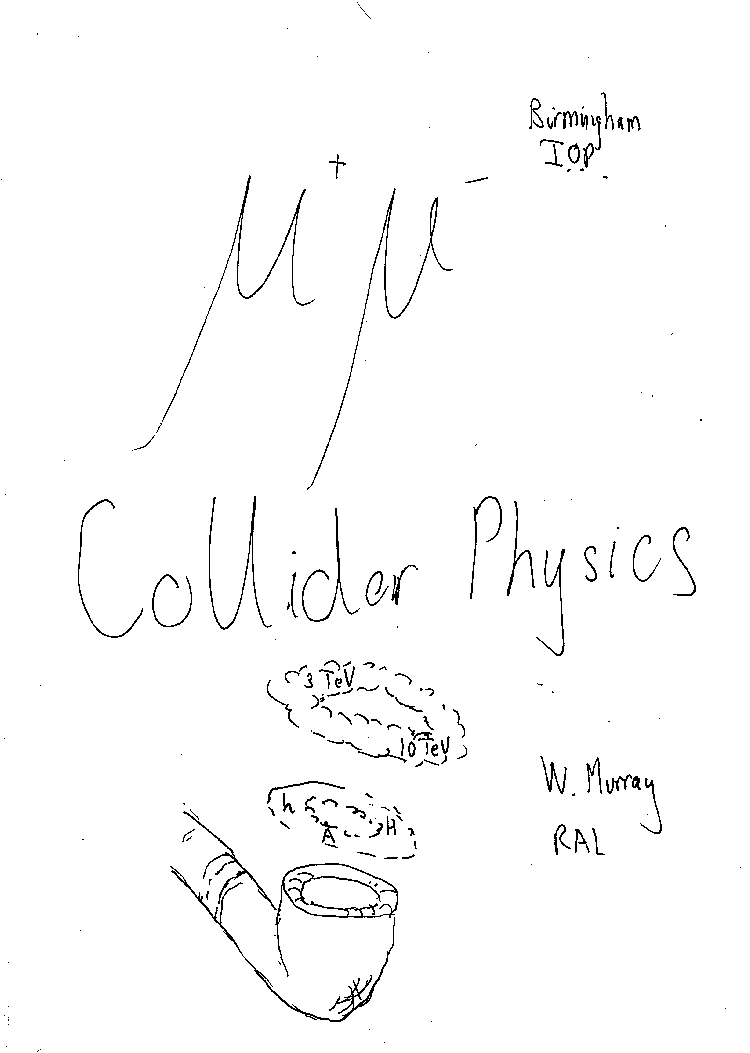 Birmingham
IOP
μ⁺μ⁻
Collider Physics
3 TeV
10 TeV
h
H
A
W. Murray
RAL